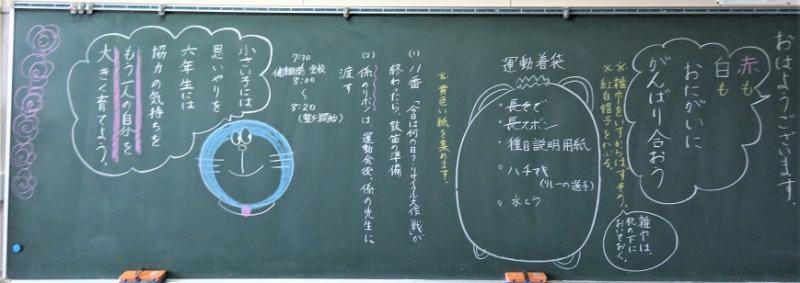 おはようございます。
赤も
白も
おたがいに
がんばり合おう
※雑巾をいすからはずそう。
※紅白帽子をかぶる。
雑巾は、
机の下に
おいておく。
運動着袋
・長そで
・長ズボン
・種目説明用紙
・ハチマキ
(リレーの選手)
・水とう
※黄色い紙を集めます。
(1) 八番 「今日は何の日？・リサイクル大作戦」が
終わったら、鼓笛の準備
(2) 係のリボンは、運動会後、係の先生に
渡す
7:30
登校
8:00
～
8:20
(整列開始)
小さい子には
思いやりを
六年生には
協力の気持ちを
もう一人の自分を
大きく育てよう。